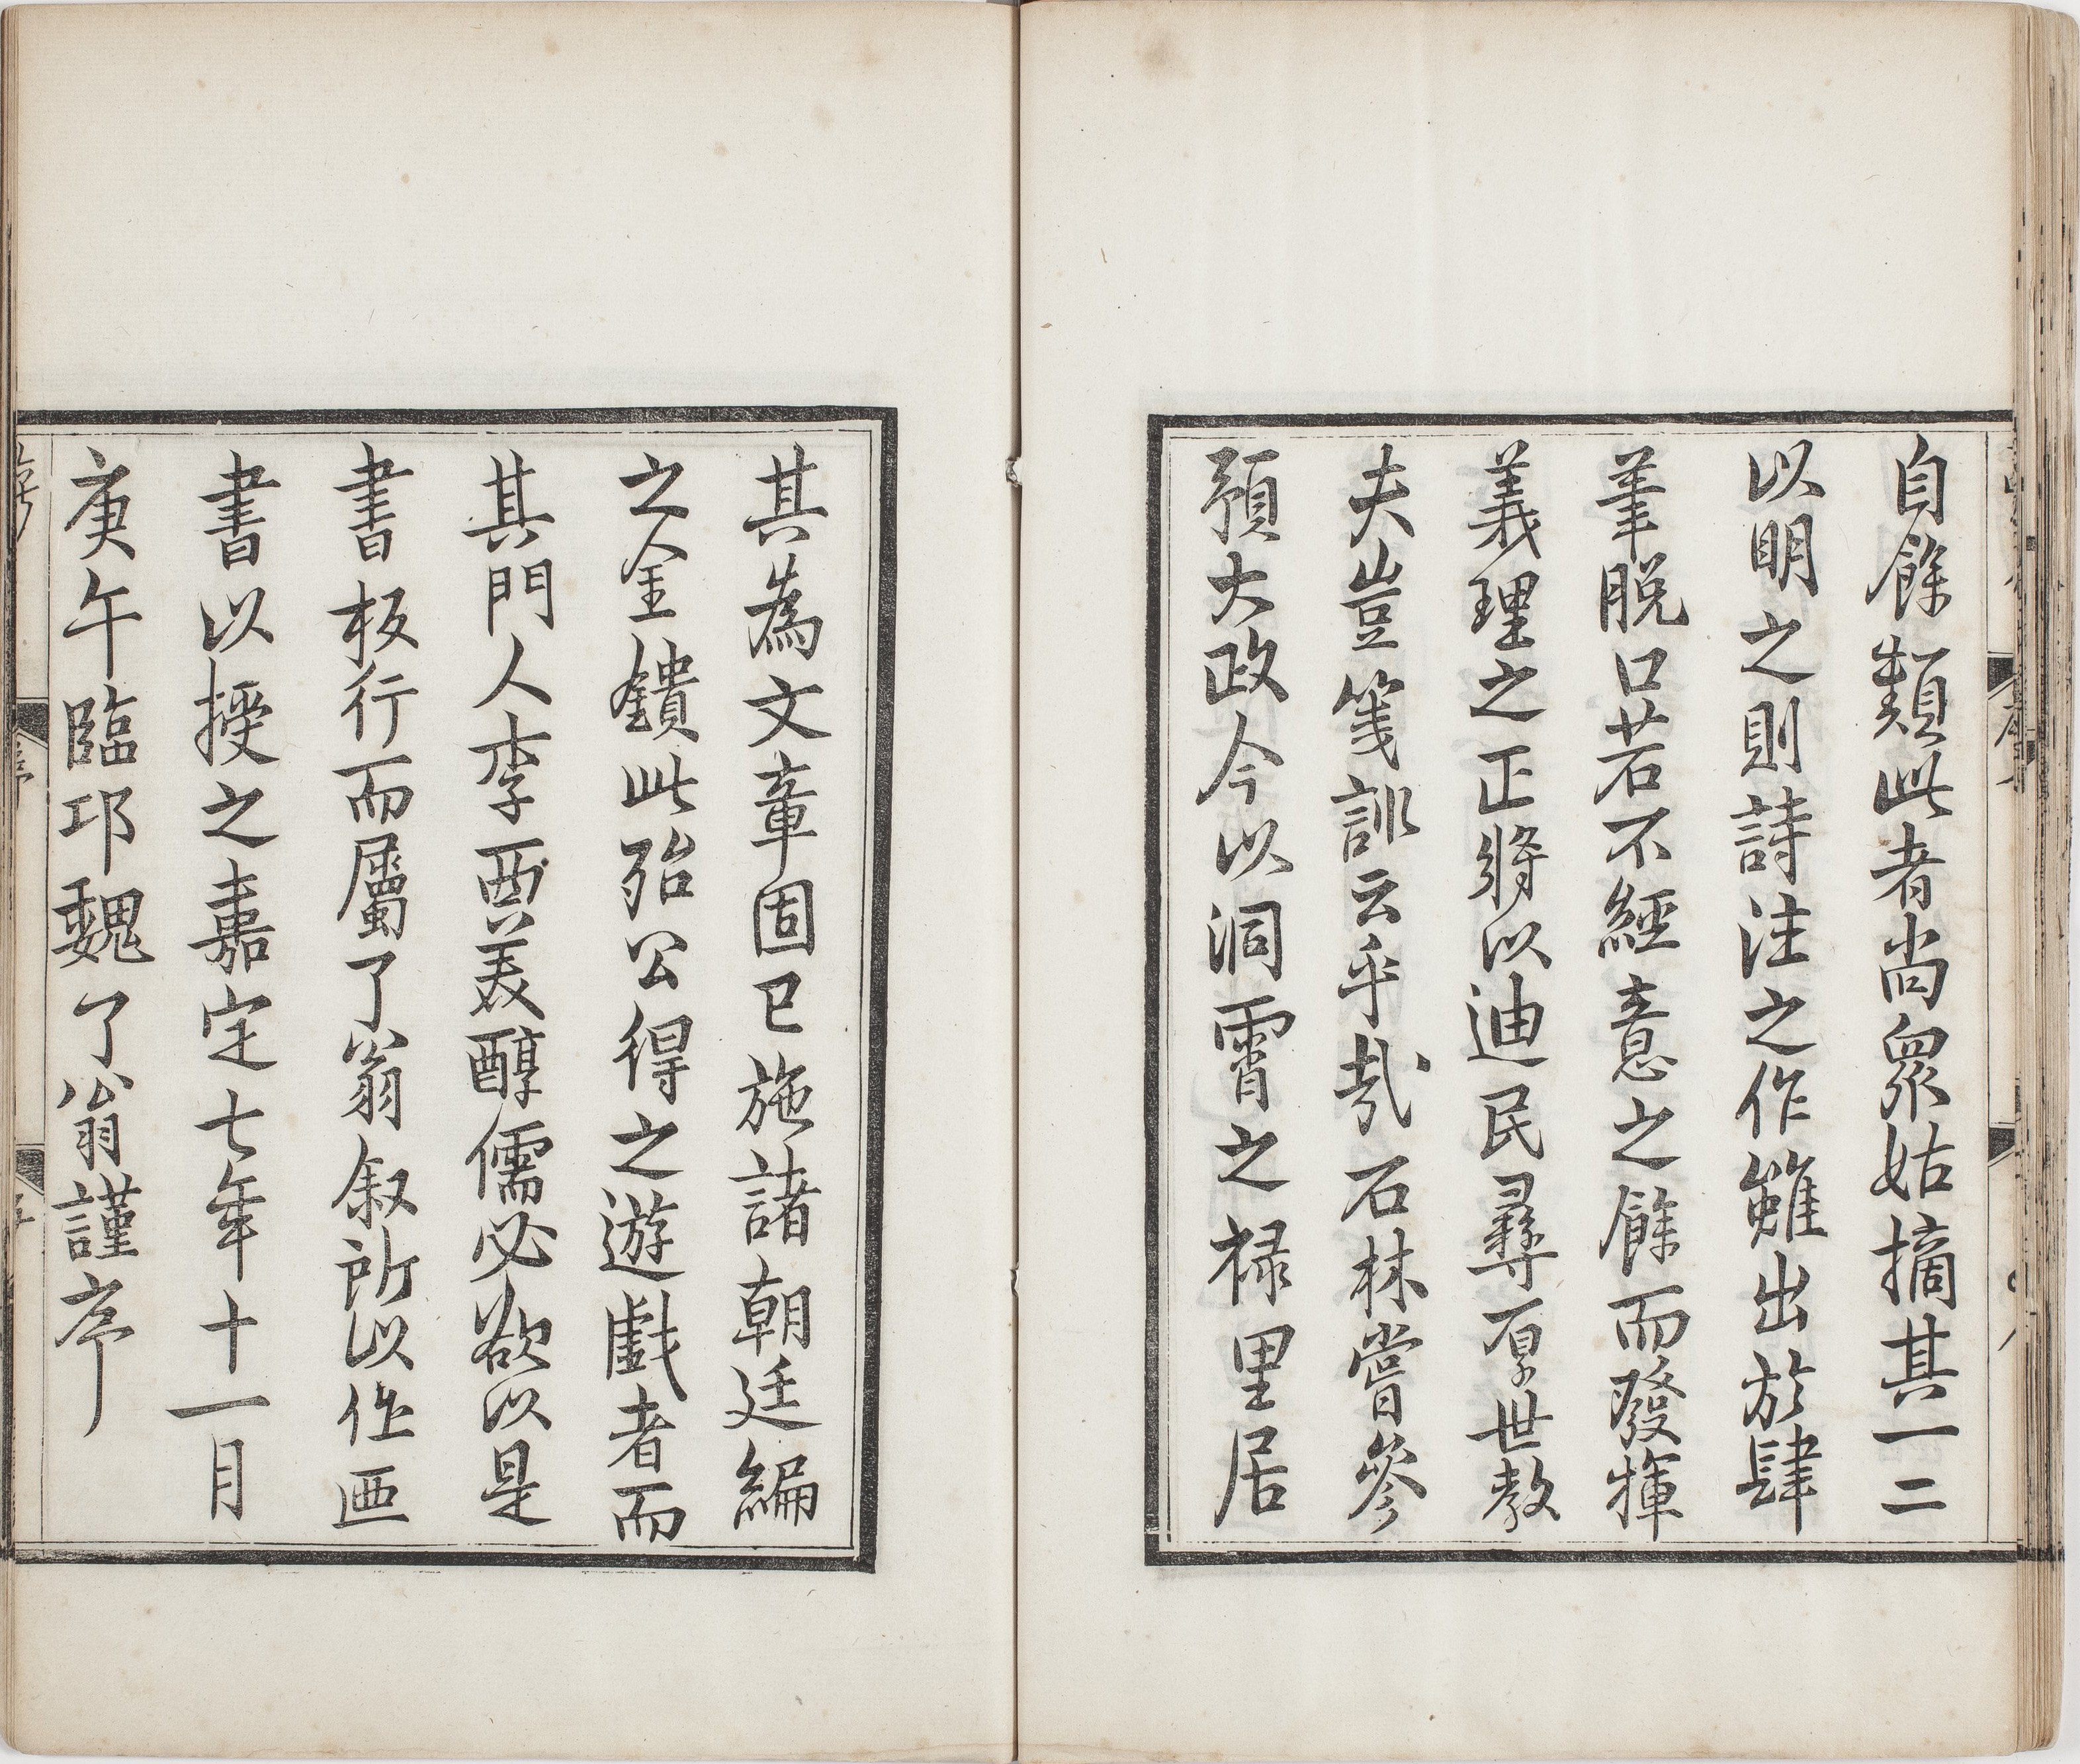 自餘類此者尚眾姑摘其一二
以明之則詩注之作雖出於肆
筆脫口若不經意之餘而發揮
義理之正將以迪民彞厚世教
夫豈箋訓云乎哉石林嘗參
預大政今以洞霄之祿里居
其為文章固已施諸朝廷編
之金鐀此殆公得之遊戲者而
其門人李西美醇儒必欲以是
書板行而屬了翁叙所以作迺
書以授之嘉定七年十一月
庚午臨邛魏了翁謹序